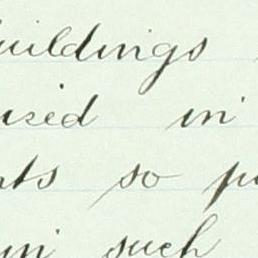 buildings
used in
nts so p
in such